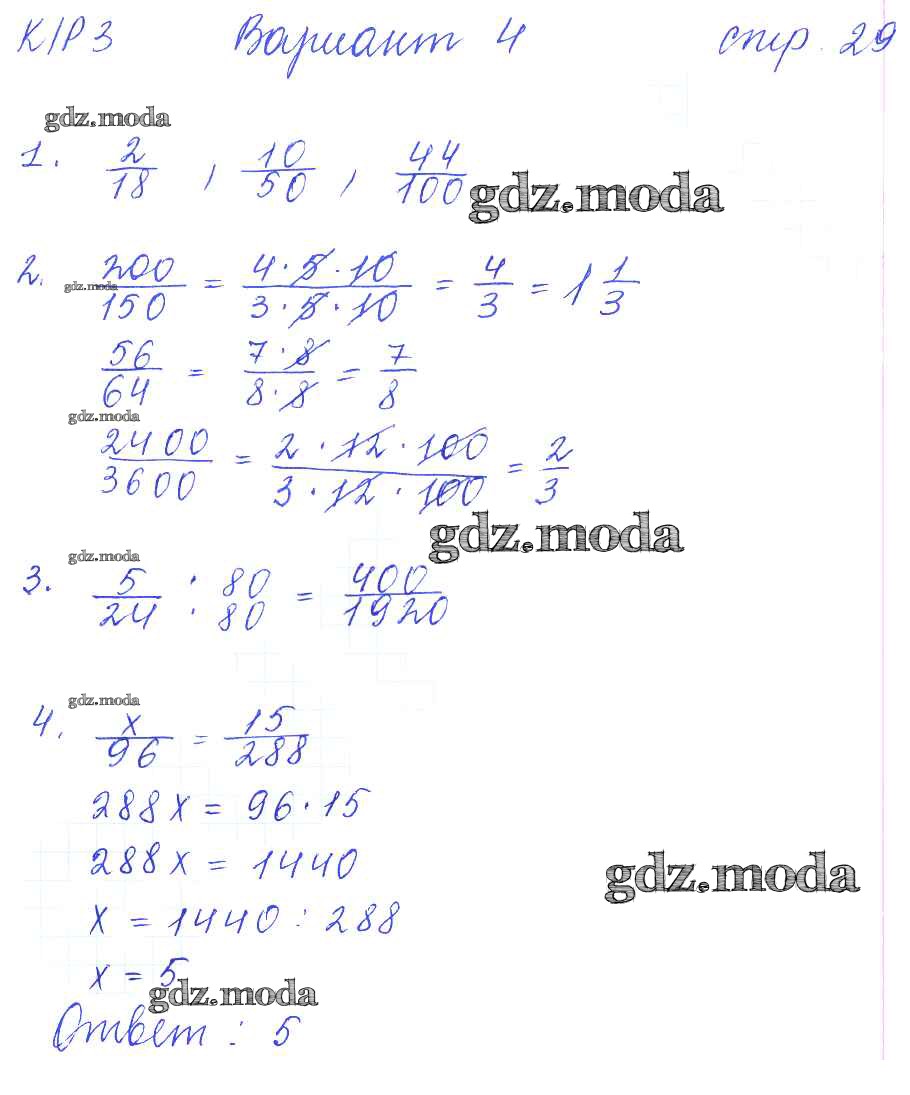 К/Р 3 Вариант 4 стр. 29
gdz.moda
1. 2/18 , 10/50 , 44/100 gdz.moda
2. 200/150 = 4·5·10/3·5·10 = 4/3 = 1 1/3
gdz.moda
56/64 = 7·8/8·8 = 7/8
gdz.moda
2400/3600 = 2·12·100/3·12·100 = 2/3
gdz.moda
gdz.moda
3. 5/24 : 80/80 = 400/1920
gdz.moda
4. x/96 = 15/288
288x = 96·15
288x = 1440
gdz.moda
x = 1440 : 288
x = 5
gdz.moda
Ответ : 5